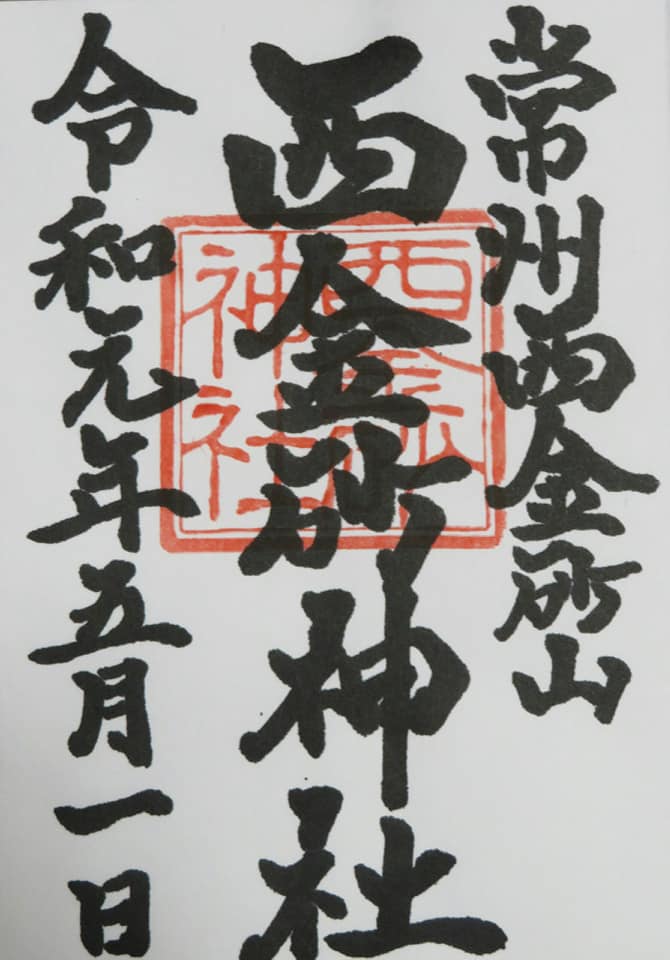 常州西金砂山
西金砂神社
西金砂
神社
令和元年五月一日